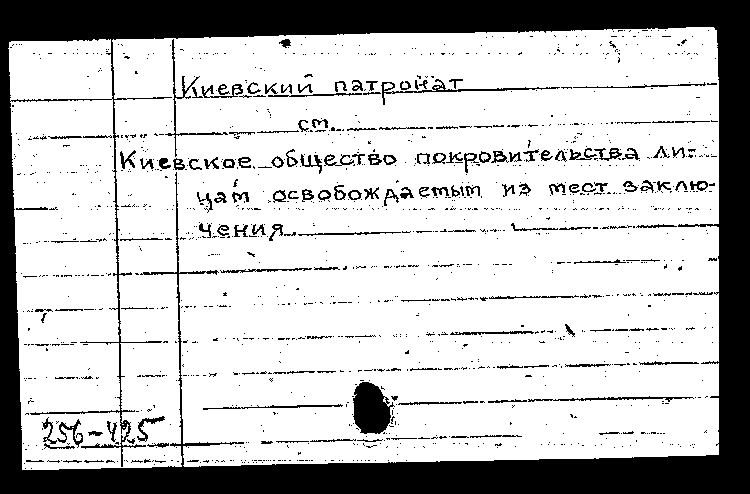 Киевский патронат
см.
Киевское общество покровительства ли-
цам освобождаемым из мест заклю-
чения.
256-425